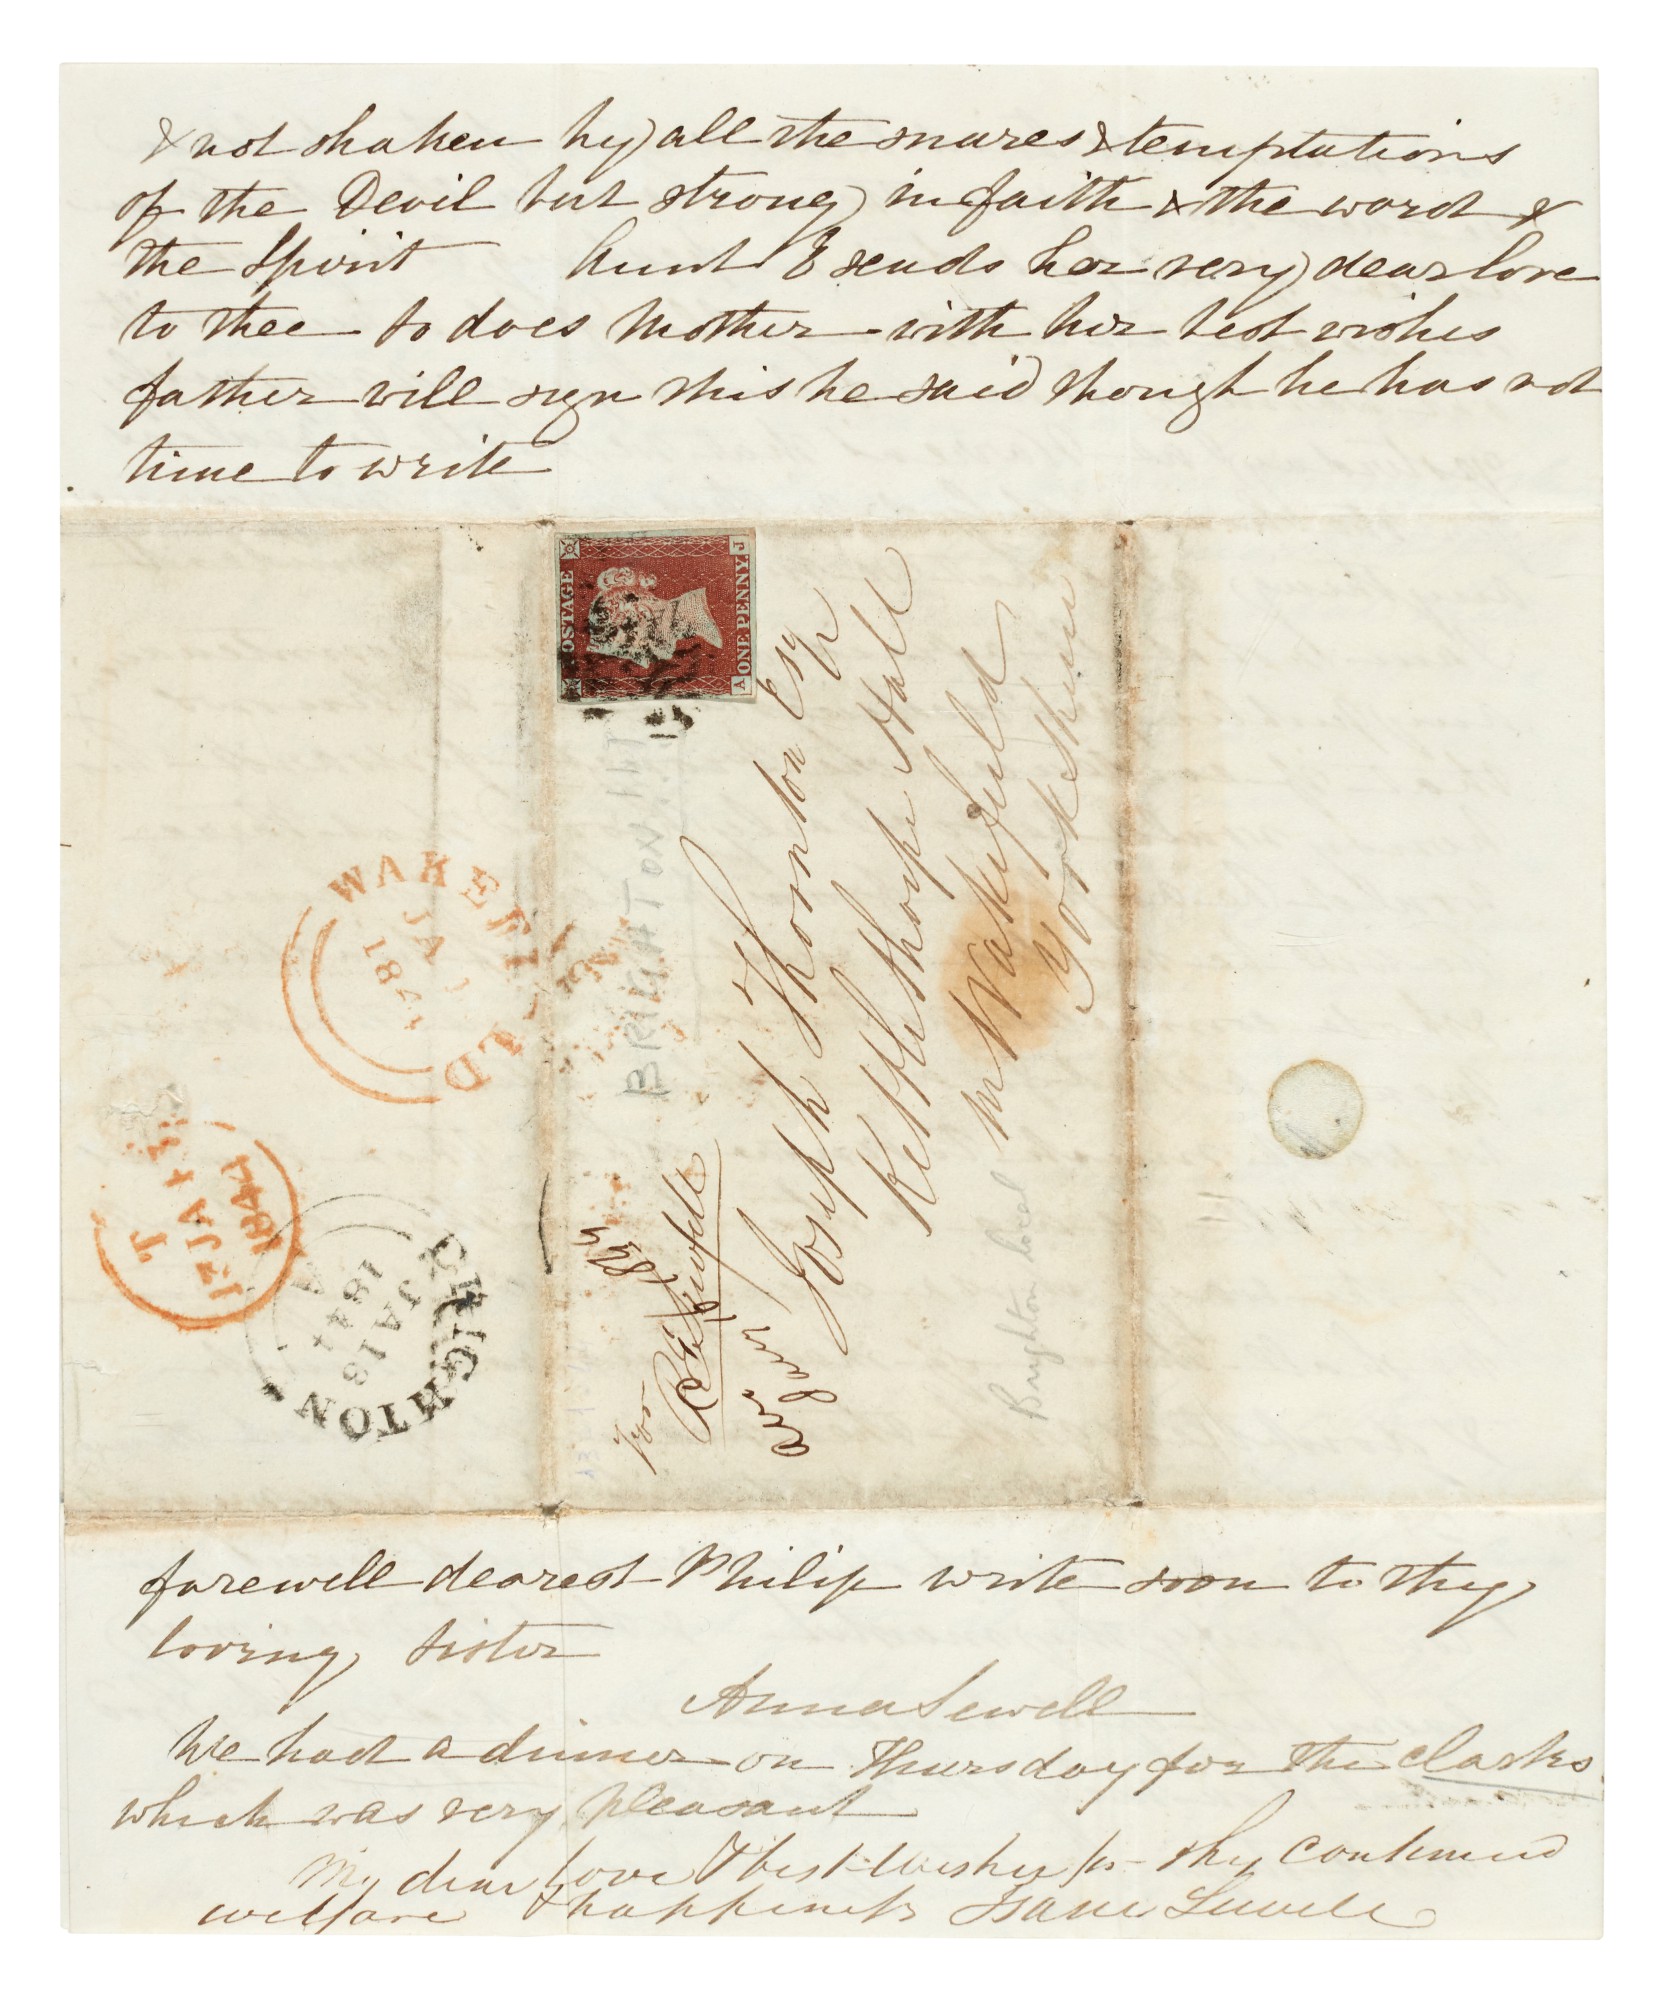 & not shaken by all the snares & temptations
of the Devil but strong in faith & the word &
the Spirit Aunt E sends her very dear love
to thee so does Mother with her best wishes
father will sign this he said though he has not
time to write
POSTAGE
ONE PENNY.
A J
BRIGHTON
Joseph Thornton Esq
Kettlethorpe Hall
nr Wakefield
Yorkshire
1844
Brighton local
WAKEFIELD
JA
184
T
17 JA 17
1844
BRIGHTON
JA 13
1844
A
farewell dearest Philip write soon to thy
loving sister
Anna Sewell
We had a dinner on Thursday for the Clarks
which was very pleasant
My dear love & best wishes for thy continued
welfare & happiness Isaac Sewell